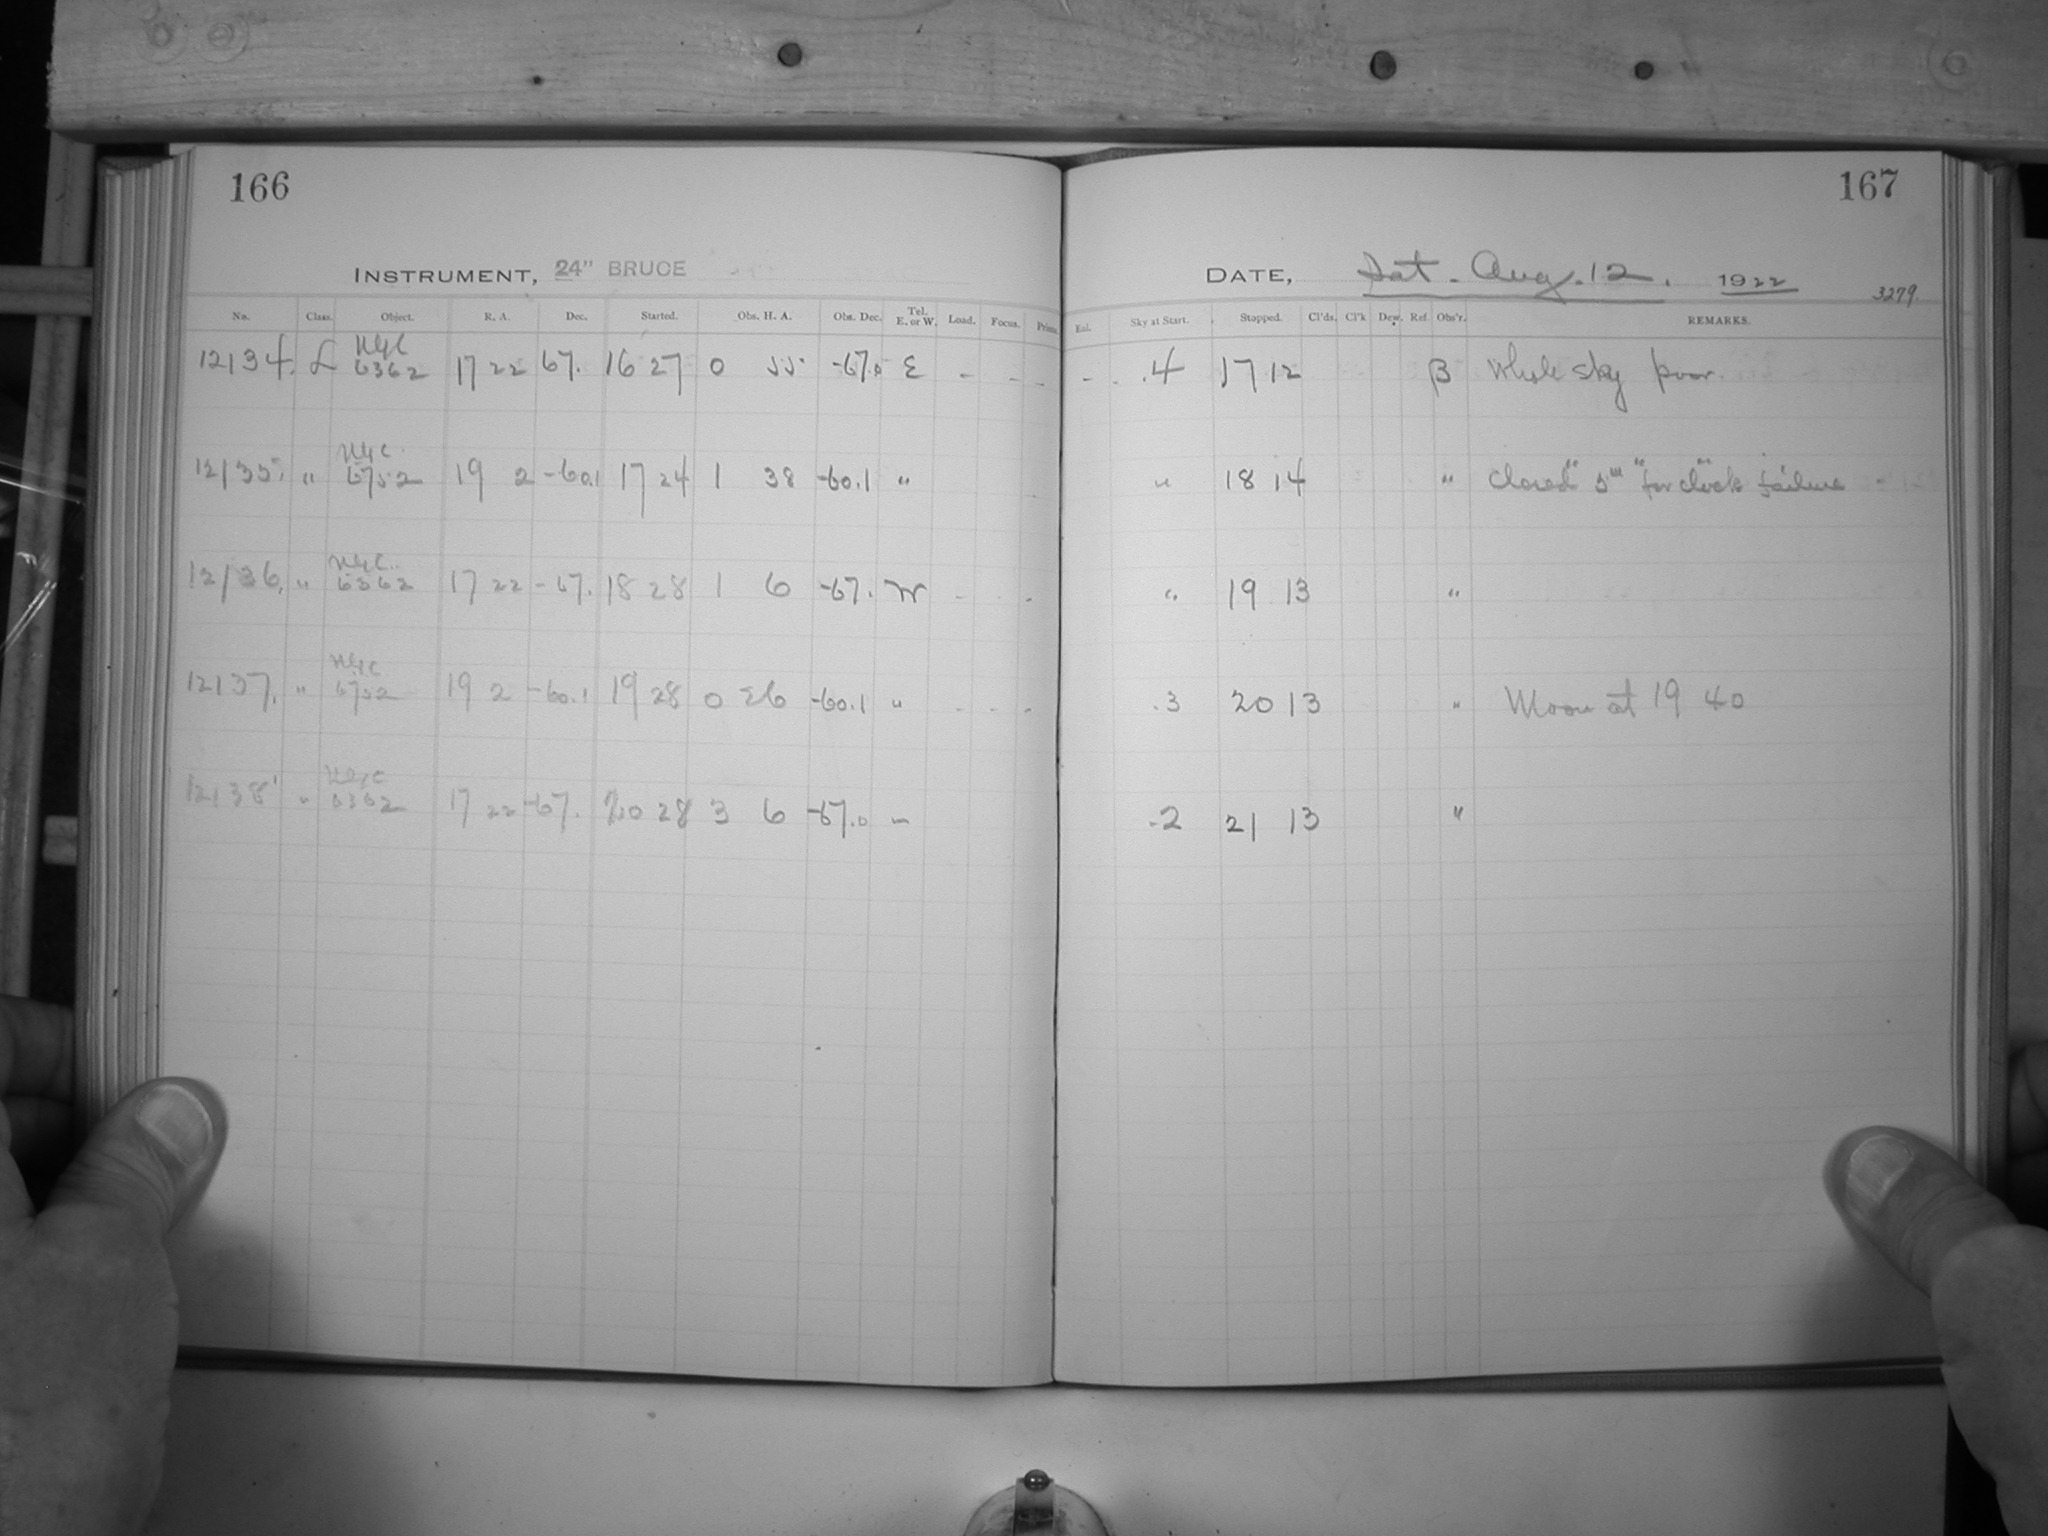 166
INSTRUMENT, 24" BRUCE
No. Class. Object. R. A. Dec. Started. Obs. H. A. Obs. Dec. Tel. E. or W. Load. Focus. Prism.
12134. L NGC 6362 17 22 67. 16 27 0 55 -67.0 E - - -
12135. " NGC. 6752 19 2 -60.1 17 24 1 38 -60.1 "
12136. " NGC. 6362 17 22 -67. 18 28 1 6 -67. W - - -
12137. " NGC 6752 19 2 -60.1 19 28 0 26 -60.1 " - - -
12138 " NGC 6362 17 22 -67. 20 28 3 6 -67.0 "
167
DATE, Sat. Aug. 12. 1922
3279.
Enl. Sky at Start. Stopped. Cl'ds. Cl'k Dew. Ref. Obs'r. REMARKS.
- .4 17 12 B Whole sky poor.
" 18 14 " Closed 5m for clock failure
" 19 13 "
.3 20 13 " Moon at 19 40
.2 21 13 "